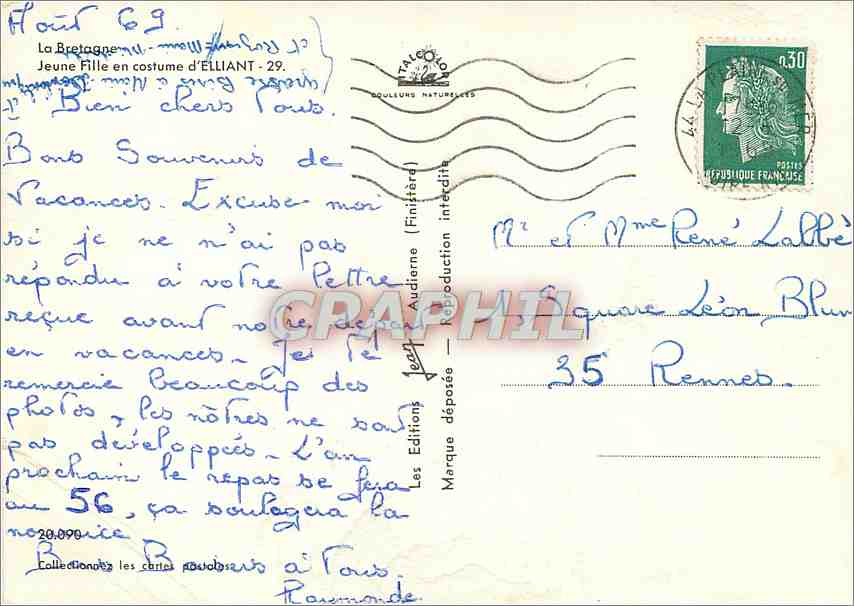 Août 69.
La Bretagne
Jeune Fille en costume d'ELLIANT - 29.
Bien chers Tous.
Bons Souvenirs de
Vacances. Excuse-moi
si je ne n'ai pas
répondu à votre lettre
reçue avant notre départ
en vacances. Je te
remercie beaucoup des
photos, les nôtres ne sont
pas développées. L'an
prochain le repas se fera
au 56, ça soulagera la
nourrice
20.090
Bons Baisers à Tous.
Collectionnez les cartes postales
Raymonde.
ITALCOLOR
COULEURS NATURELLES
Les Editions Jean Audierne (Finistère)
Marque déposée — Reproduction interdite
CRAPHIL
0,30
POSTES
REPUBLIQUE FRANÇAISE
44 LA PLAINE MER
Mr et Mme René Labbé
1, Square Léon Blum
35 Rennes.